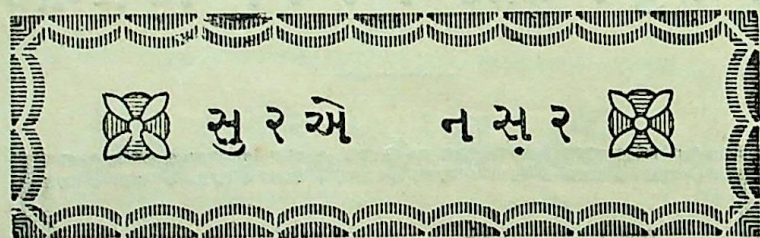 સુરએ નસ઼ર